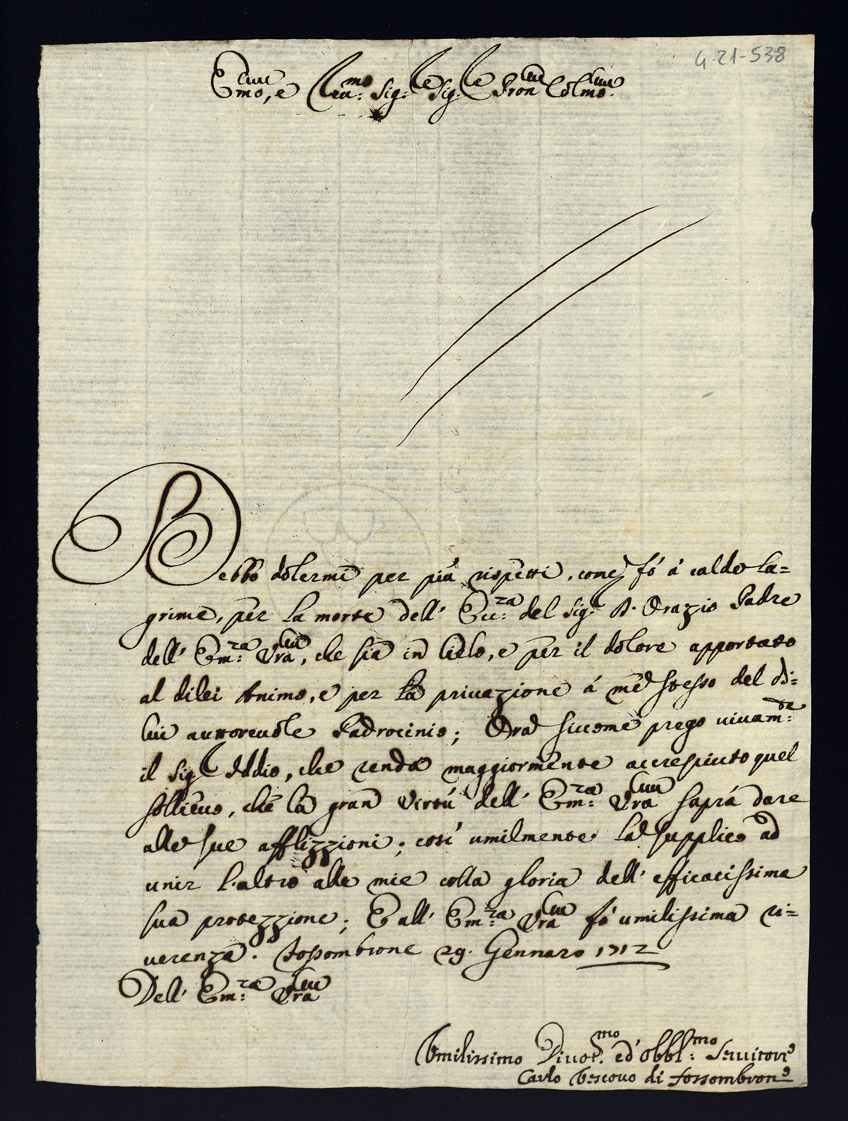 4-21-538
Emo, e Reu:mo Sig:re Sig:re Pron Colmo
Debbo dolermi per più rispetti, come fò à calde la=
grime, per la morte dell' Ecc:za del Sig:r D. Orazio Padre
dell' Em:za Vra, che sia in Cielo, e per il dolore apportato
al dilei Animo, e per la privazione à me stesso del di=
lui auttoreuole Padrocinio; Ora siccome prego vivam:te
il Sig.r Iddio, che renda maggiormente accresciuto quel
sollieuo, che la gran Virtù dell' Em:za Vra saprà dare
alle sue afflizzioni; così umilmente la supplico ad
unir l'altro alle mie colla gloria dell' efficacissima
sua protezzione; E all' Em:za Vra fò umilissima ri=
uerenza. Fossombrone 29. Gennaro 1712
Dell' Em:za Vra
Umilissimo Diuot:mo ed' obbl:mo Seruitore
Carlo Vescouo di Fossombrone